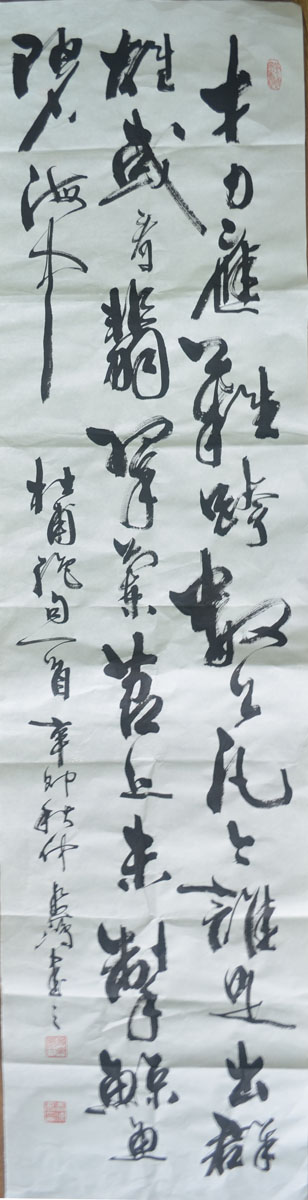 才力應難跨數公凡今誰是出群
雄或看翡翠蘭苕上未掣鯨魚
碧海中
杜甫絕句一首辛卯秋仲 書之